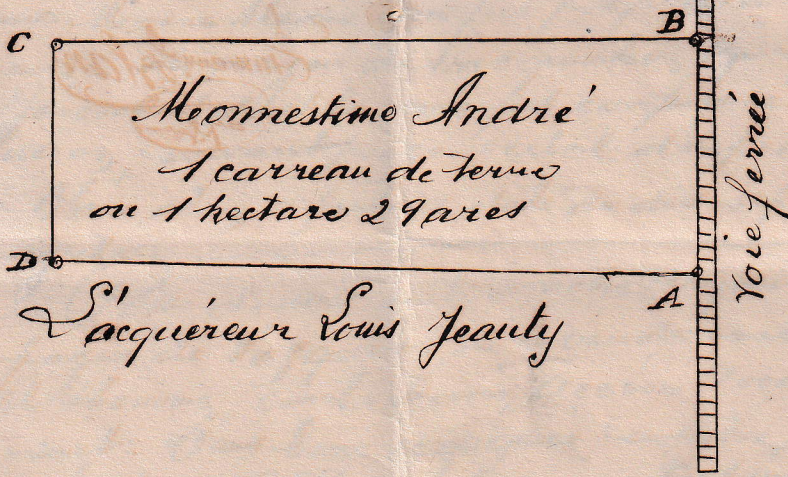 C
B
Monnestime André
1 carreau de terre
ou 1 hectare 29 ares
D
A
L'acquéreur Louis Jeauty
Voie ferrée